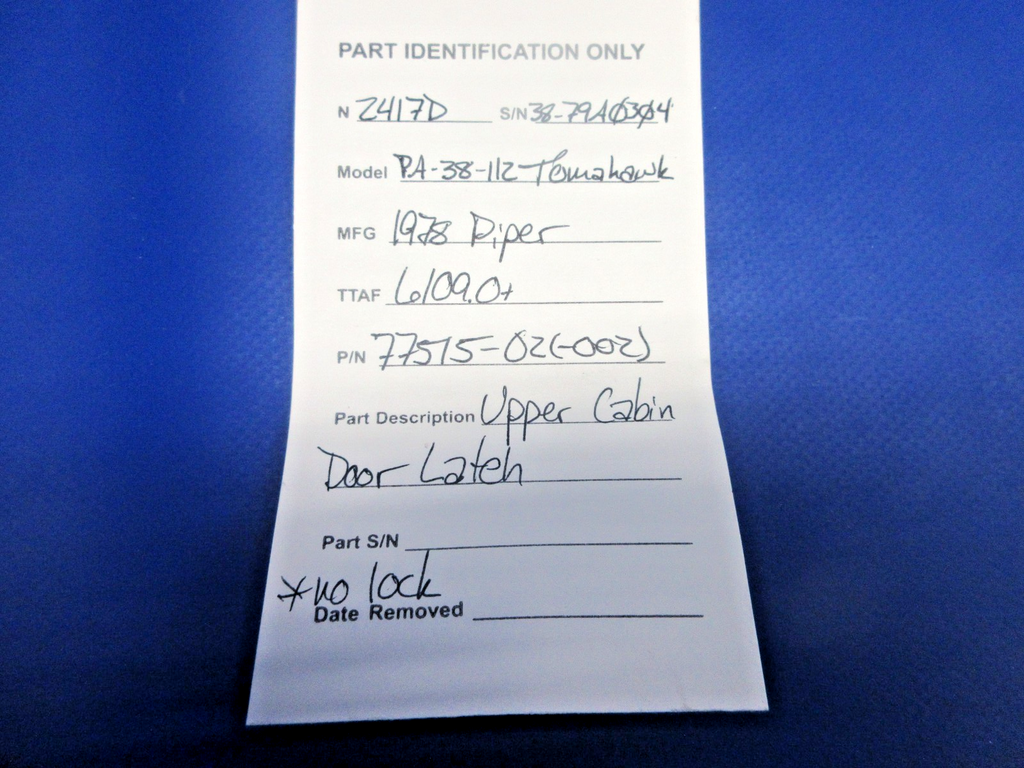 PART IDENTIFICATION ONLY
N 2417D S/N 38-79A0304
Model PA-38-112 Tomahawk
MFG 1978 Piper
TTAF 6109.0+
P/N 77515-02(-002)
Part Description Upper Cabin
Door Latch
Part S/N
*no lock
Date Removed